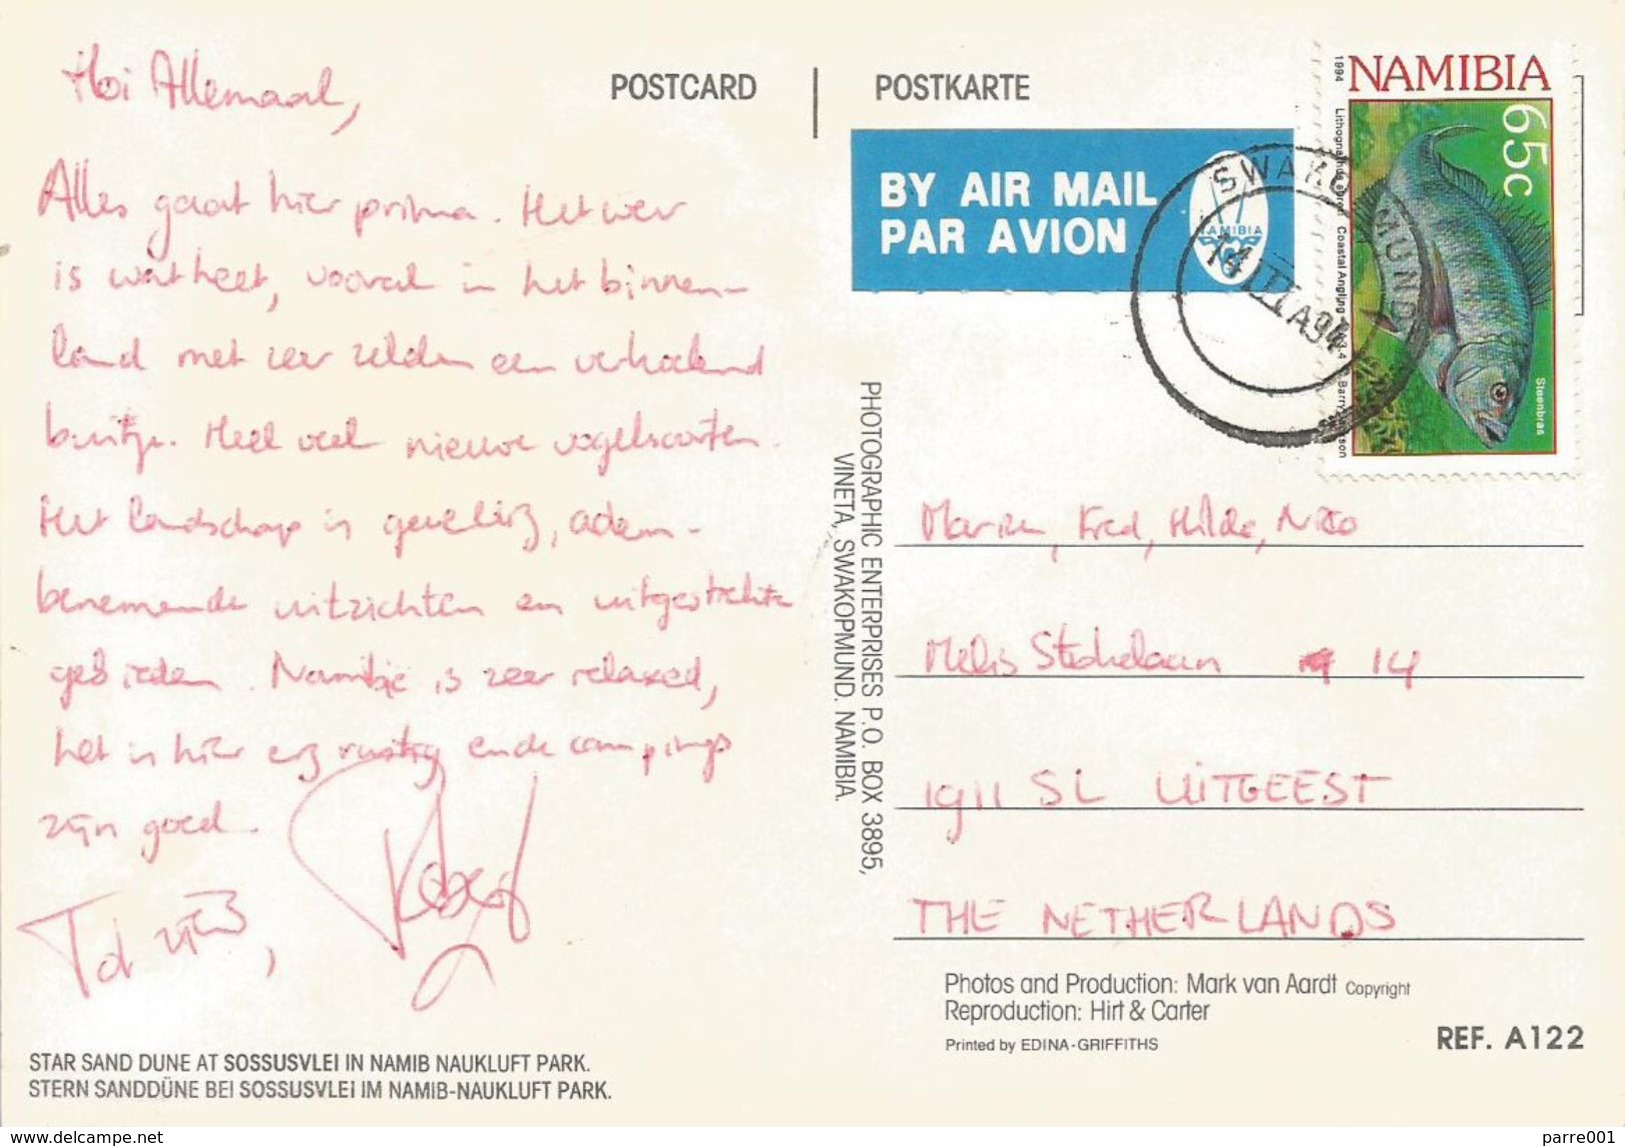 POSTCARD
POSTKARTE
Hoi Allemaal,
Alles gaat hier prima. Het weer
is wat heet, vooral in het binnen-
land met zeer zelden een verkoelend
buitje. Heel veel nieuwe vogelsoorten.
Het landschap is geweldig, adem-
benemende uitzichten en uitgestrekte
gebieden. Namibië is zeer relaxed,
het is hier erg rustig en de campings
zijn goed.
Tot ziens,
STAR SAND DUNE AT SOSSUSVLEI IN NAMIB NAUKLUFT PARK.
STERN SANDDÜNE BEI SOSSUSVLEI IM NAMIB-NAUKLUFT PARK.
PHOTOGRAPHIC ENTERPRISES P.O. BOX 3895,
VINETA, SWAKOPMUND. NAMIBIA.
BY AIR MAIL
PAR AVION
NAMIBIA
SWAKOPMUND
14 III A94
NAMIBIA
65c
Steenbras
1994 Coastal Angling
Fred, Hilde, Nico
Melis Stokelaan 14
1911 SL UITGEEST
THE NETHERLANDS
Photos and Production: Mark van Aardt Copyright
Reproduction: Hirt & Carter
Printed by EDINA-GRIFFITHS
REF. A122
www.delcampe.net
parre001